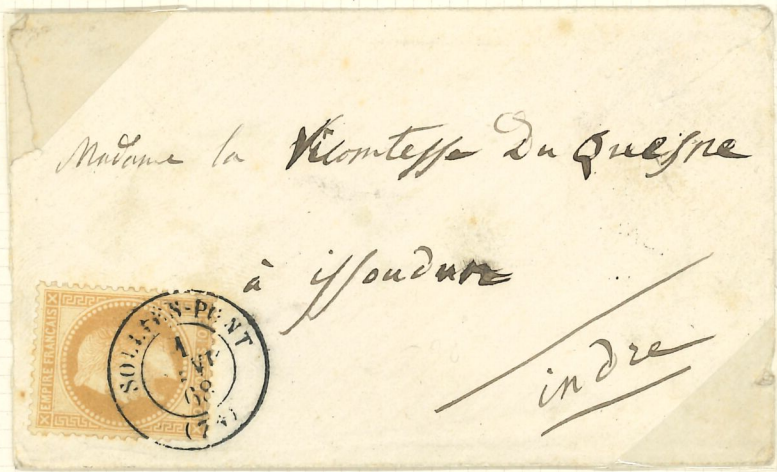 Madame la Vicomtesse Du Quesne
à issoudun
indre
EMPIRE FRANÇAIS
SOLLIÈS-PONT
1
68